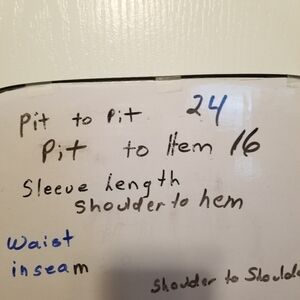 Pit to Pit 24
Pit to Hem 16
Sleeve Length
Shoulder to hem
Waist
inseam
Shoulder to